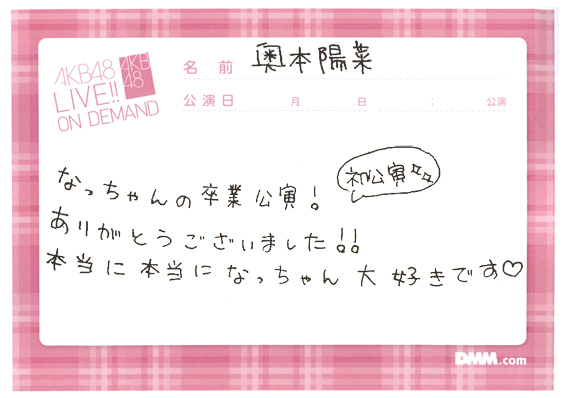 AKB48
LIVE!!
ON DEMAND
AKB
48
名 前 奥本陽菜
公演日 月 日 : 公演
初公演
なっちゃんの卒業公演!
ありがとうございました!!
本当に本当になっちゃん大好きです♡
DMM.com